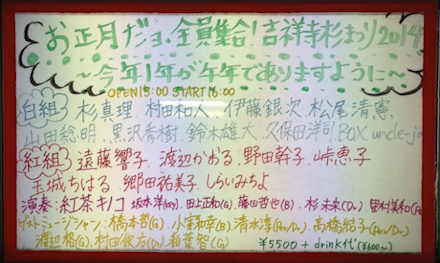 お正月だョ、全員集合!吉祥寺杉まつり2014
～今年1年が午年でありますように～
OPEN 15:00 START 16:00
白組 杉真理 村田和人 伊藤銀次 松尾清憲
山田稔明 黒沢秀樹 鈴木雄大 久保田洋司 BOX uncle-j
紅組 遠藤響子 渡辺かおる 野田幹子 峠恵子
玉城ちはる 郷田祐美子 しらいみちよ
演奏:紅茶キノコ 坂本洋(Key) 田上正和(G) 藤田哲也(B) 杉未来(Dr) 里村美和(Per)
ゲストミュージシャン:橋本哲(G) 小室和幸(B) 清水淳(Per/Dr) 高橋結子(Per/Dr)
渡辺格(G) 村田
¥5500+drink代(¥600～)